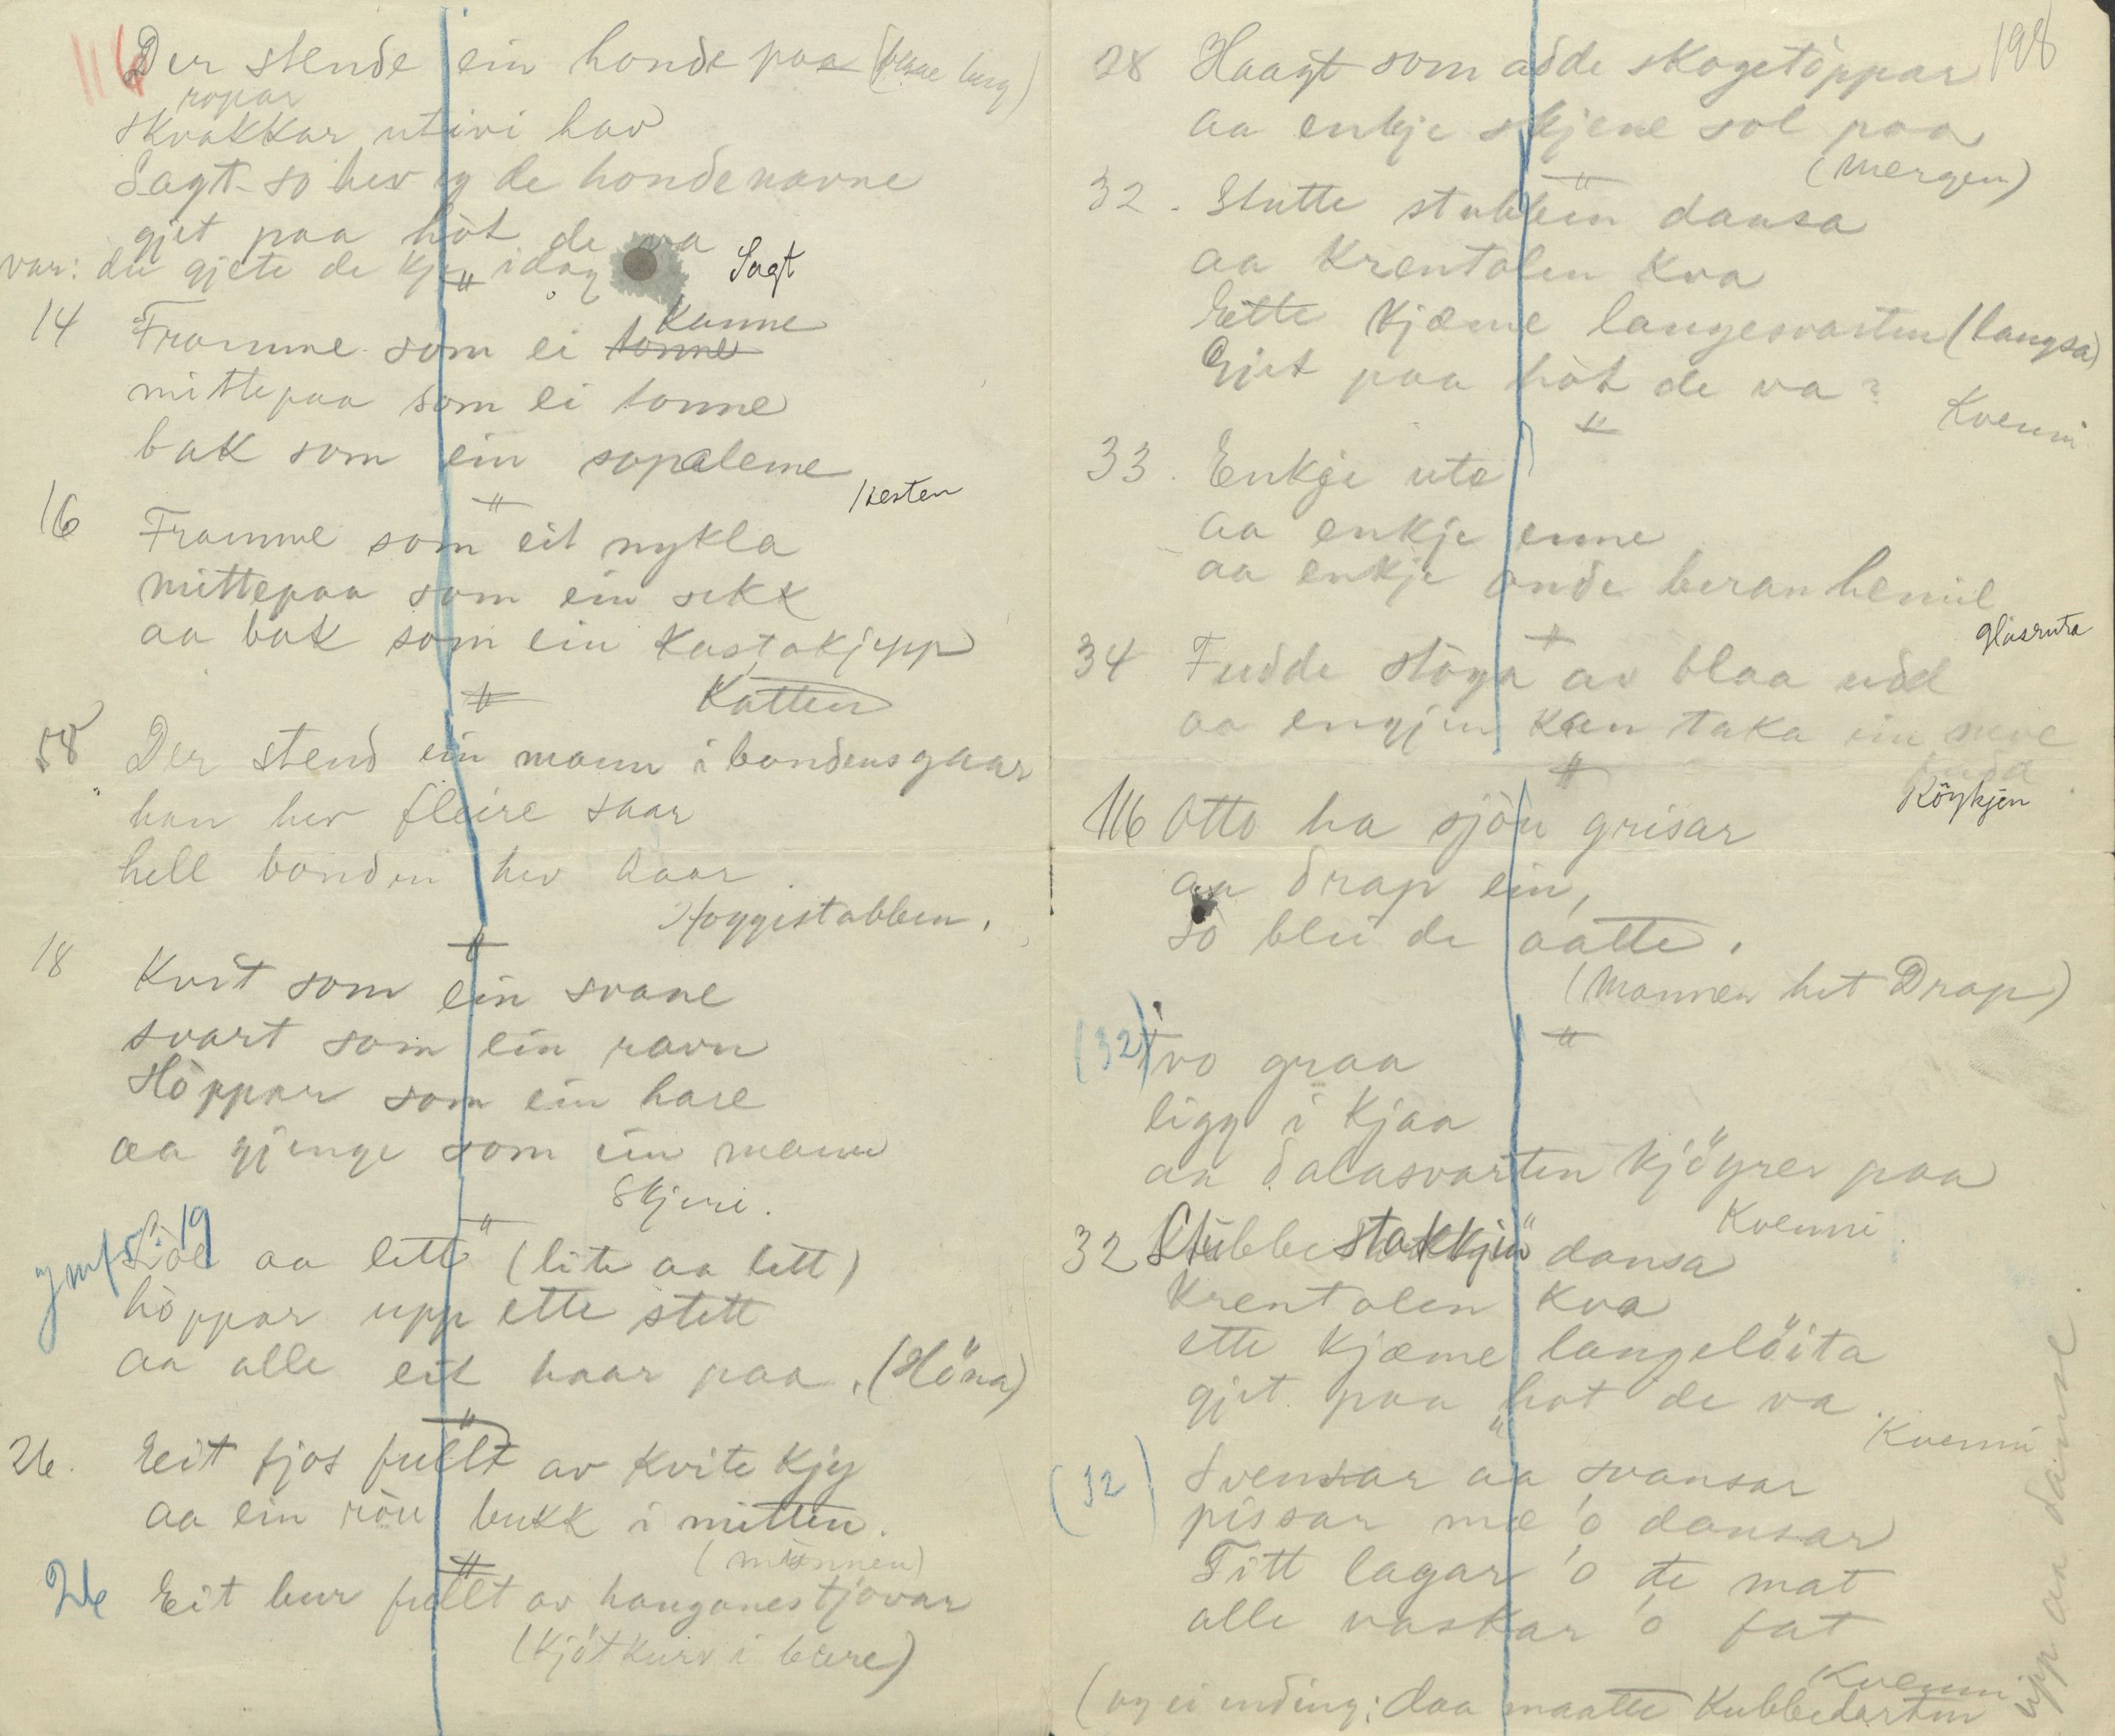 116
Der stende ein honde paa (blaae berg)
ropar
skvakkar utivi hav
Sagt so hev eg de hondenavne
gjet paa hòt de va
var: du gjete de kje idag
Sagt
14 Framme som ei tonne kanne
mittepaa som ei tonne
bak som ein sopaleme
Hesten
16 Framme som eit nykla
mittepaa som ein sekk
aa bak som ein kastakjepp
Katten
58 Der stend ein mann i bondens gaar
han hev fleire saar
hell bonden hev haar
Hoggestabben.
18 Kvit som ein svane
svart som ein ravn
Höppar som ein hare
aa gjenge som ein mann
Skjeri.
jmf: 19 aa lett (lite aa lett)
höppar upp ette stett
aa alle eit haar paa. (Höna)
26. Eit fjos fullt av kvite kjy
aa ein röu bukk i mitten.
(munnen)
26 Eit bur fullt av hanganestjovar
(kjötkurv i bure)
198
28 Haagt som adde skogetöppar
aa enkje skjene sol paa
(mergen)
32. Stutte stubbein dansa
aa Krentalen kva
Ette kjæme langesvarten (langsa)
Gjet paa hòt de va?
Kvenni
33. Enkje ute
aa enkje enne
aa enkje onde beran hemil
glasruta
34 Fudde stöga av blaa udd
aa engjen kan taka ein neve
fudd
Röykjen
116 Otto ha sjöu grisar
aa drap ein,
so blei de aatte.
(Mannen het Drap)
(32) Tvo graa
ligg i kjaa
aa dalasvarten kjöyrer paa
Kvenni.
32 Stubbestakkjen dansa
Krentalen kva
ette kjæme langelöita
gjet paa hot de va.
Kvenni
(32) Svensar aa svansar
pissar mæ 'o dansar
Titt lagar 'o te mat
alle vaskar 'o fat
Kvenni
(og ei ending: daa maatte Kubbedarten
upp aa danse